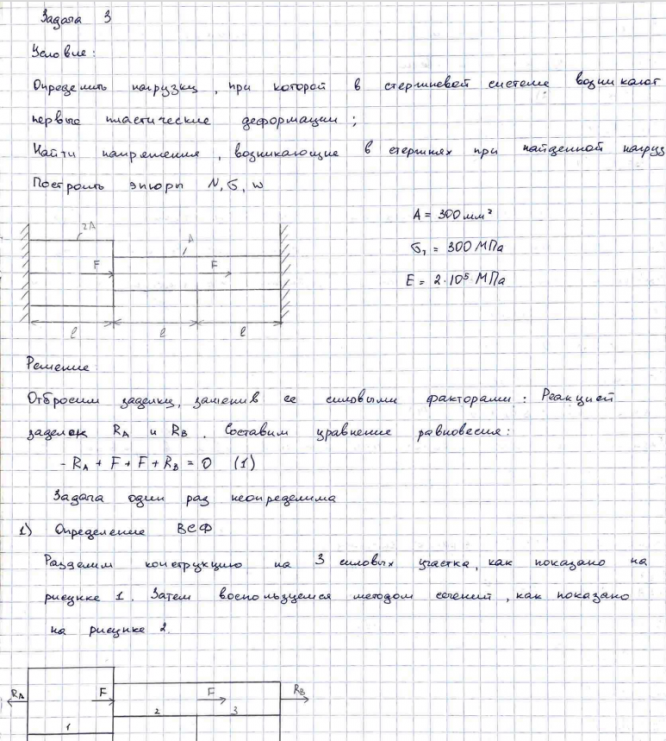 Задача 3
Условие:
Определить нагрузку, при которой в стержневой системе возникают
первые пластические деформации;
Найти напряжения, возникающие в стержнях при найденной нагруз
Построить эпюры N, σ, w
A = 300 мм²
σт = 300 МПа
E = 2·10⁵ МПа
2A A
F F
l l l
Решение
Отбросим заделку, заменив ее силовыми факторами: Реакцией
заделок RA и RB. Составим уравнение равновесия:
- RA + F + F + RB = 0 (1)
Задача один раз неопределима
1) Определение ВСФ
Разделим конструкцию на 3 силовых участка, как показано на
рисунке 1. Затем воспользуемся методом сечений, как показано
на рисунке 2.
RA F F RB
1 2 3